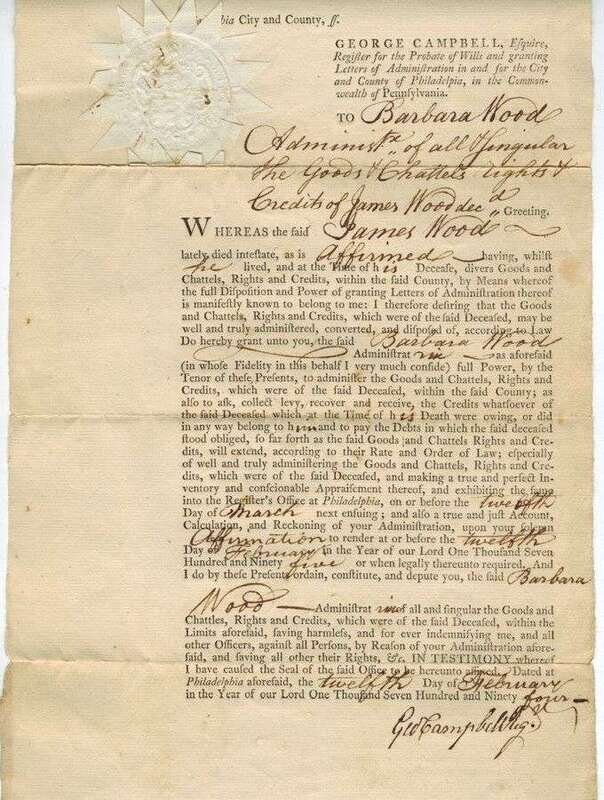 bia City and County, ſſ.
GEORGE CAMPBELL, Eſquire,
Regiſter for the Probate of Wills and granting
Letters of Adminiſtration in and for the City
and County of Philadelpia, in the Common-
wealth of Pennſylvania.
TO Barbara Wood
Administx. of all & Singular
the Goods & Chattels rights &
Credits of James Wood decd. Greeting.
WHEREAS the ſaid James Wood
lately died inteſtate, as is Affirmed having, whilſt
he lived, and at the Time of his Deceaſe, divers Goods and
Chattels, Rights and Credits, within the ſaid County, by Means whereof
the full Diſpoſition and Power of granting Letters of Adminiſtration thereof
is manifeſtly known to belong to me: I therefore deſiring that the Goods
and Chattels, Rights and Credits, which were of the ſaid Deceaſed, may be
well and truly adminiſtered, converted, and diſpoſed of, according to Law
Do hereby grant unto you, the ſaid Barbara Wood
Adminiſtratrix as aforeſaid
(in whoſe Fidelity in this behalf I very much confide) full Power, by the
Tenor of theſe Preſents, to adminiſter the Goods and Chattels, Rights and
Credits, which were of the ſaid Deceaſed, within the ſaid County; as
alſo to aſk, collect levy, recover and receive, the Credits whatſoever of
the ſaid Deceaſed which at the Time of his Death were owing, or did
in any way belong to him and to pay the Debts in which the ſaid deceaſed
ſtood obliged, ſo far forth as the ſaid Goods and Chattels Rights and Cre-
dits, will extend, according to their Rate and Order of Law; eſpecially
of well and truly adminiſtering the Goods and Chattels, Rights and Cre-
dits, which were of the ſaid Deceaſed, and making a true and perfect In-
ventory and conſcionable Appraiſement thereof, and exhibiting the ſame
into the Regiſter's Office at Philadelphia, on or before the twelfth
Day of March next enſuing; and alſo a true and juſt Account,
Calculation, and Reckoning of your Adminiſtration, upon your ſolemn
Affirmation to render at or before the twelfth
Day of February in the Year of our Lord One Thouſand Seven
Hundred and Ninety five or when legally thereunto required. And
I do by theſe Preſents ordain, conſtitute, and depute you, the ſaid Barbara
Wood Adminiſtratrix of all and ſingular the Goods and
Chattles, Rights and Credits, which were of the ſaid Deceaſed, within the
Limits aforeſaid, ſaving harmleſs, and for ever indemnifying me, and all
other Officers, againſt all Perſons, by Reaſon of your Adminiſtration afore-
ſaid, and ſaving all other their Rights, &c. IN TESTIMONY whereof
I have cauſed the Seal of the ſaid Office to be hereunto affixed. Dated at
Philadelphia aforeſaid, the twelfth Day of February
in the Year of our Lord One Thouſand Seven Hundred and Ninety four
Geo Campbell Reg.